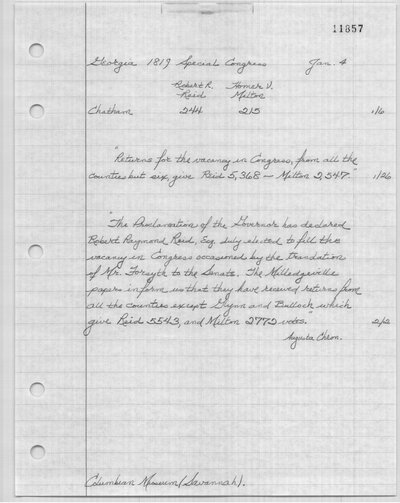 11857
Georgia 1819 Special Congress Jan. 4
Robert R. Homer V.
Reid Milton
Chatham 244 215 1/6
"Returns for the vacancy in Congress, from all the
counties but six, give Reid 5,368 – Milton 2,547." 1/26
"The Proclamation of the Governor has declared
Robert Raymond Reid, Esq. duly elected to fill the
vacancy in Congress occasioned by the translation
of Mr. Forsyth to the Senate. The Milledgeville
papers inform us that they have received returns from
all the counties except Glynn and Bulloch which
give Reid 5543, and Milton 2772 votes." 2/2
Augusta Chron.
Columbian Museum (Savannah).